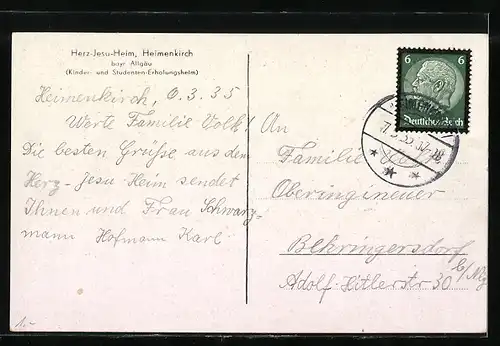 Herz-Jesu-Heim, Heimenkirch
bayr Allgäu
(Kinder- und Studenten-Erholungsheim)
Heimenkirch, 6.3.35
Werte Familie Volk!
Die besten Grüsse aus dem
Herz-Jesu-Heim sendet
Ihnen und Frau Schwarz-
mann Hofmann Karl
1.-
6 6
Deutsches Reich
An
Familie Volk
Oberingineuer
Behringersdorf
b/Nbg
Adolf-Hitlerstr 30